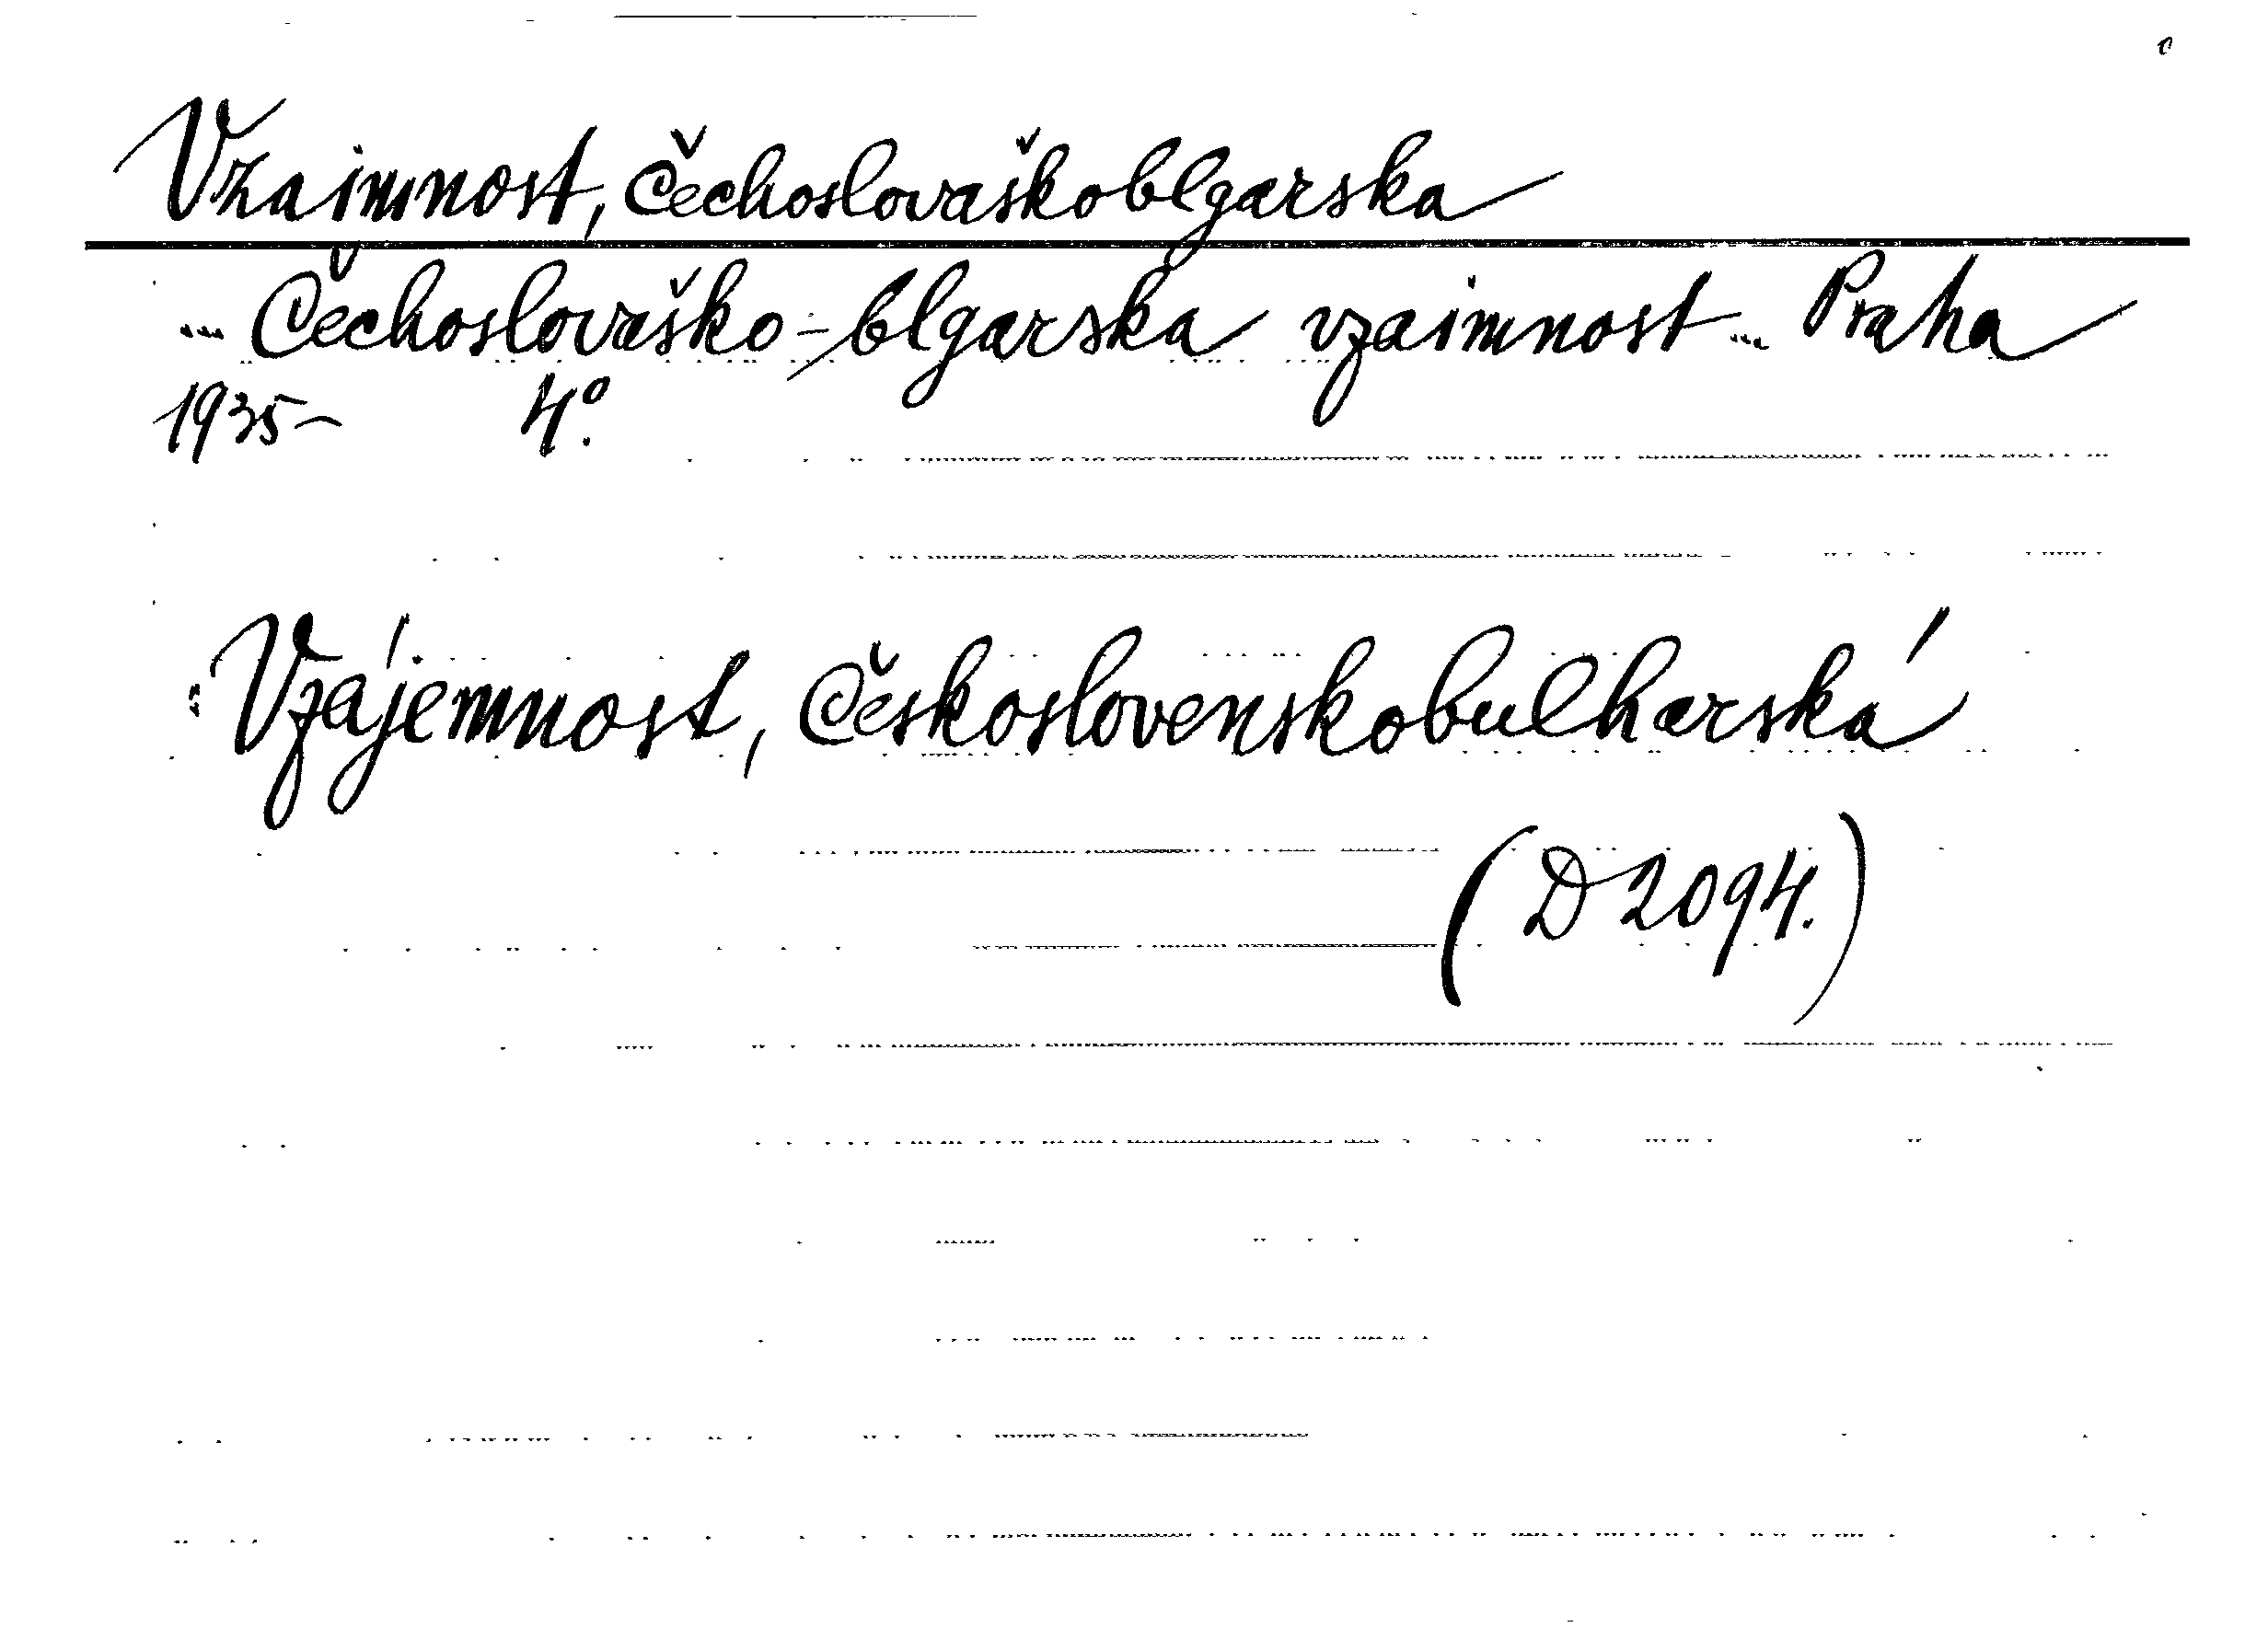 Vzaimnost, Čechoslovaškoblgarska
... Čechoslovaško-blgarska vzaimnost... Praha
1935- 4°.
: Vzájemnost, Československobulharská
(D 2094.)